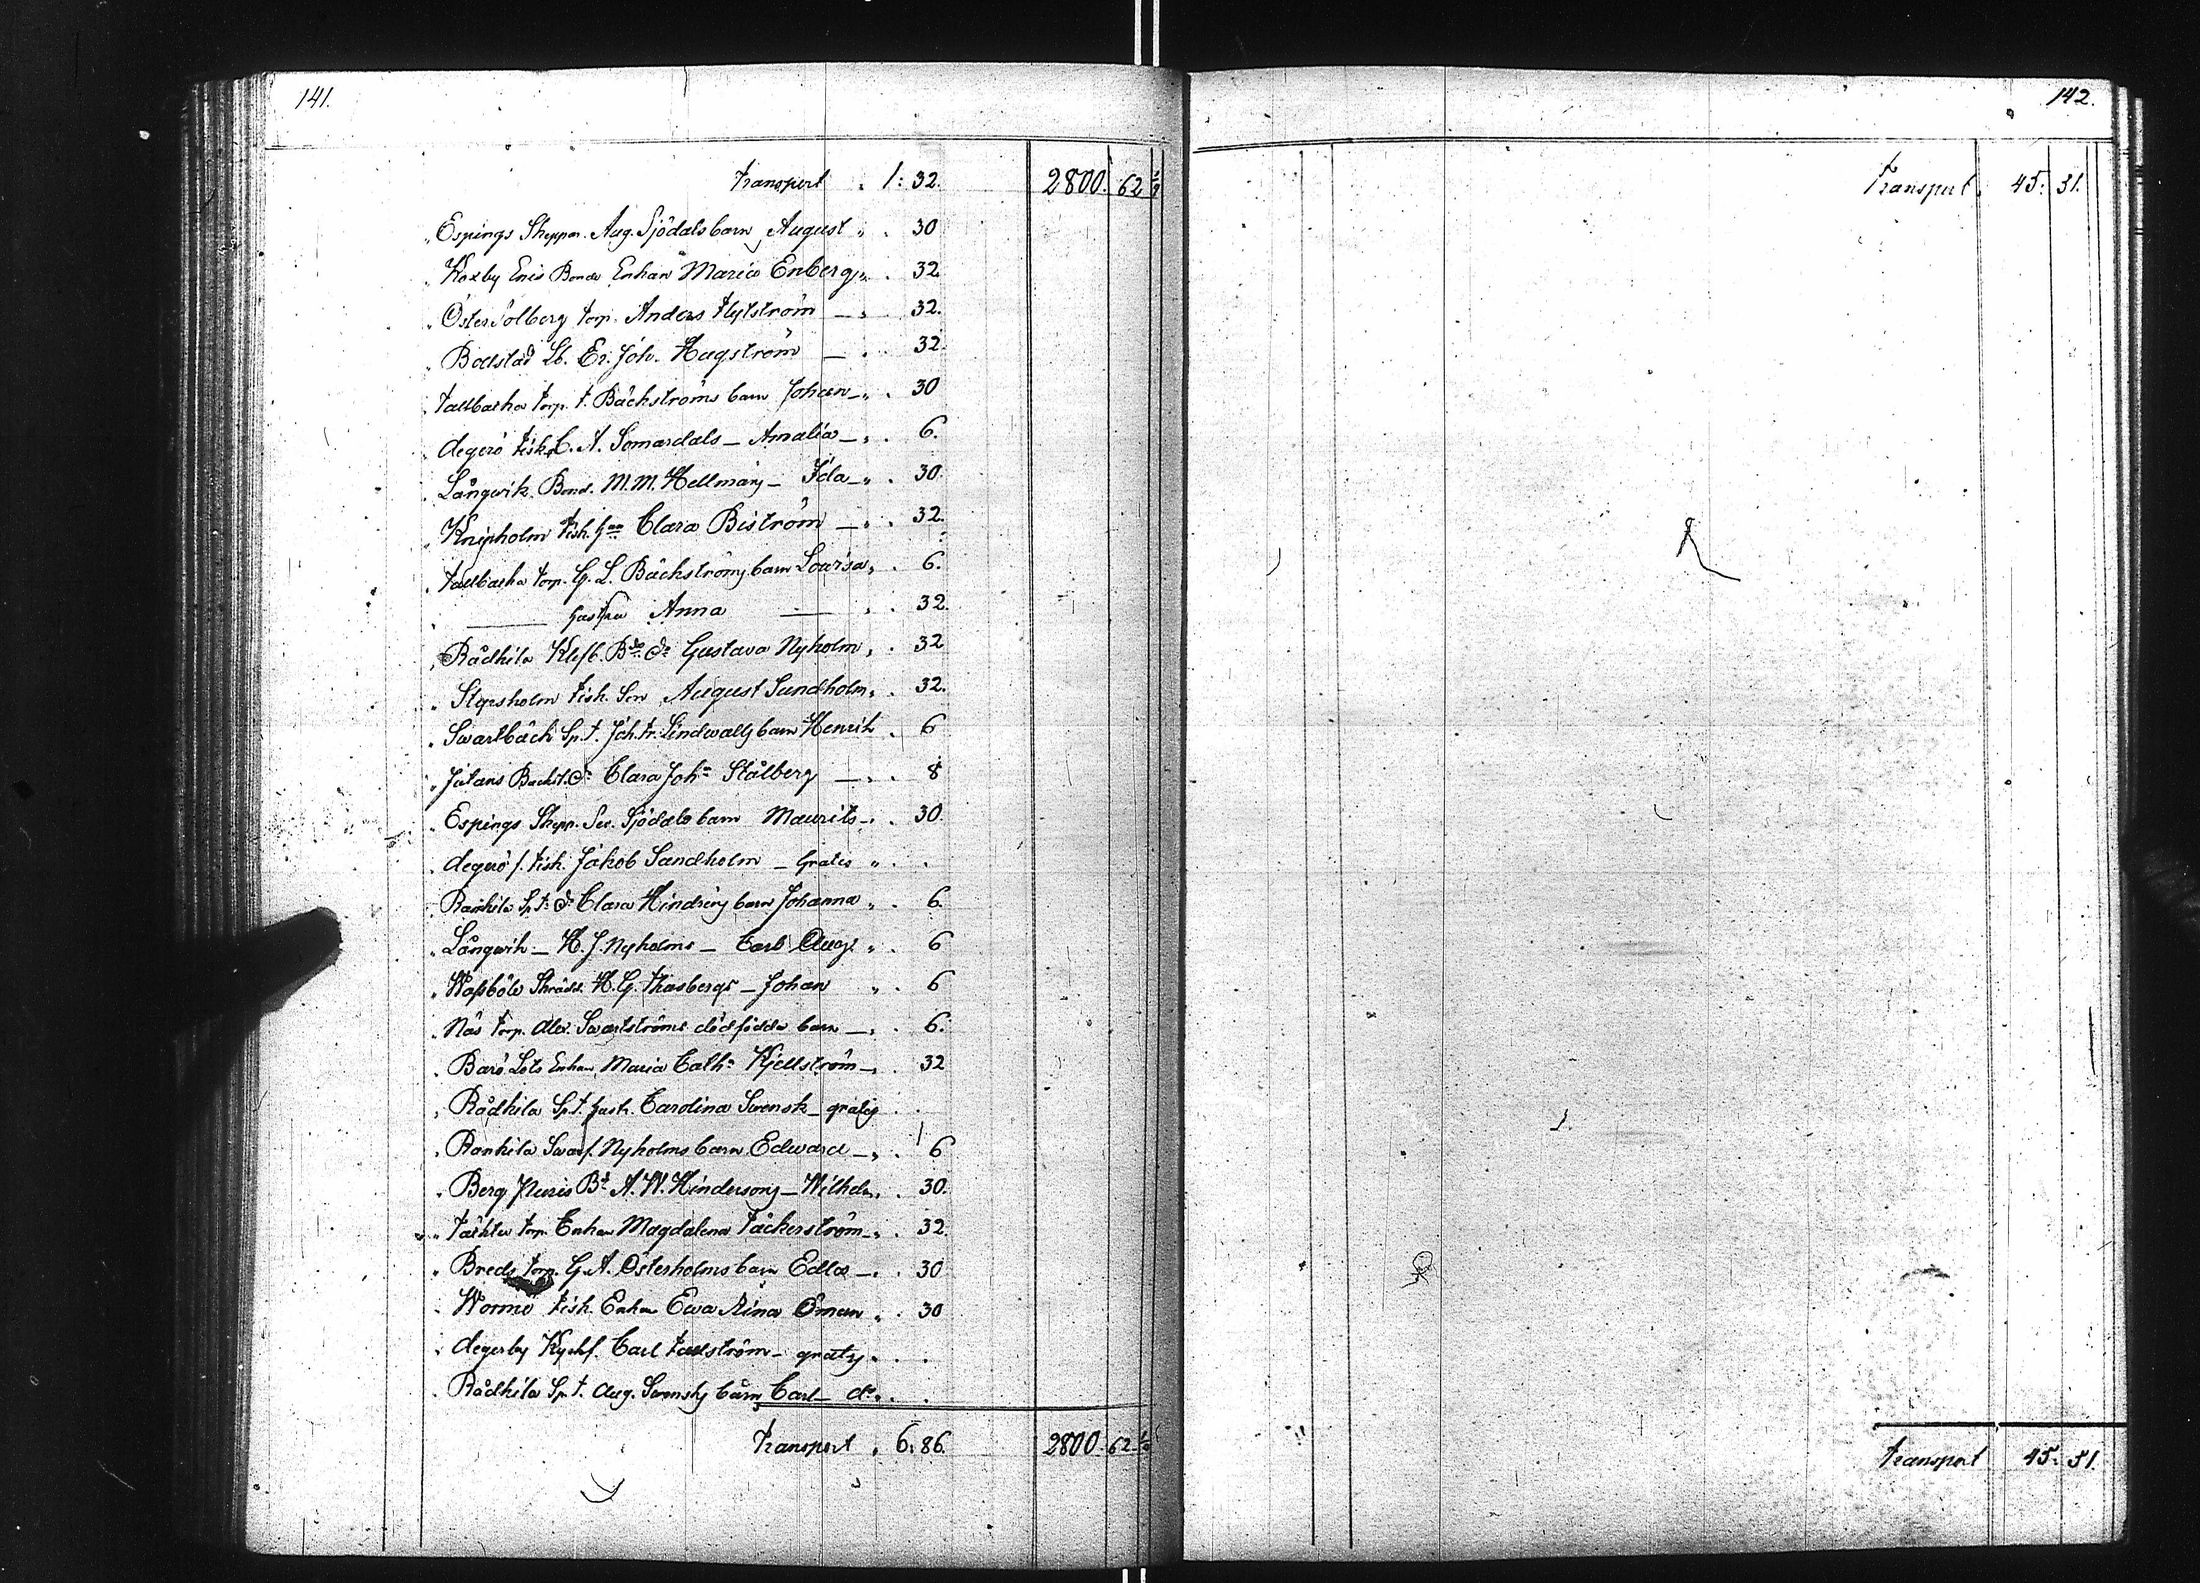 141.
Transport „ 1: 32. 2800. 62 ½
„ Espings Skeppar. Aug. Sjödals barn August „ . 30
„ Koxby Eris Bonde Enkan Maria Enberg „ . 32
„ Östersolberg torp. Anders Flytström — „ 32.
„ Bollstad Lb. Er. Joh. Hagström — „ . 32.
„ Tallbacka torp. t. Bäckströms barn Johan — „ . 30
„ Degerö Fisk. C. A. Somardals — Amalia — „ . 6.
„ Långwik. Bond. M. M. Hellmans — Ida — „ . 30.
„ Knipholm Fisk. Clara Biström — „ . 32.
„ Tallbacka torp. G. L. Bäckströms barn Lowisa „ . 6.
„ ——— hustru Anna — „ . 32.
„ Rådkila Klefb. Gustava Nyholm „ . 32
„ Stepsholm Fisk. Son August Sundholm „ . 32.
„ Swartbäck Sp. t. Joh. Fr. Lindwalls barn Henrik . 6
„ Jutans Backst. Clara Joh:a Stålberg — „ . 8
„ Espings Skepp. Sev. Sjödals barn Maurits — . 30.
„ Degerö f. Fisk. Jakob Sandholm — Gratis „ . .
„ Rankila Sp. t. Clara Hindrins barn Johanna „ . 6.
„ Långwik — H. J. Nyholms — Carl Aug. „ . 6
„ Wassböle Skrädd. H. G. Thasbergs — Johan „ . 6
„ Näs torp. Alex. Swartströms dödfödda barn — „ . 6.
„ Barö Lots Enkan Maria Cath:a Kjellström — „ . 32
„ Rådkila Sp. t. hustr. Carolina Swensk — gratis . .
„ Rankila Swarf. Nyholms barn Edward — „ . 6
„ Berg Puris B:d A. W. Hindersons — Wilhelm . 30.
„ Täkter torp. Enkan Magdalena Täckerström — „ . 32.
„ Breds torp. G. A. Österholms barn Edla — . . 30
„ Wormö Fisk. Enkan Ewa Stina Öman „ . 30
„ Degerby Kyrkf. Carl Tallström — gratis „ . .
„ Rådkila Sp. t. Aug. Swensks barn Carl — d:o „ . .
Transport „ 6: 86. 2800. 62. ½
142.
Transport „ 45: 51.
Transport 45: 51.